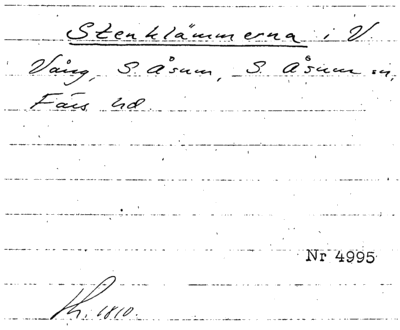 Stenklämmerna i V
Vång, S. Åsum, S. Åsum sn,
Färs hd.
Nr 4995
1810.